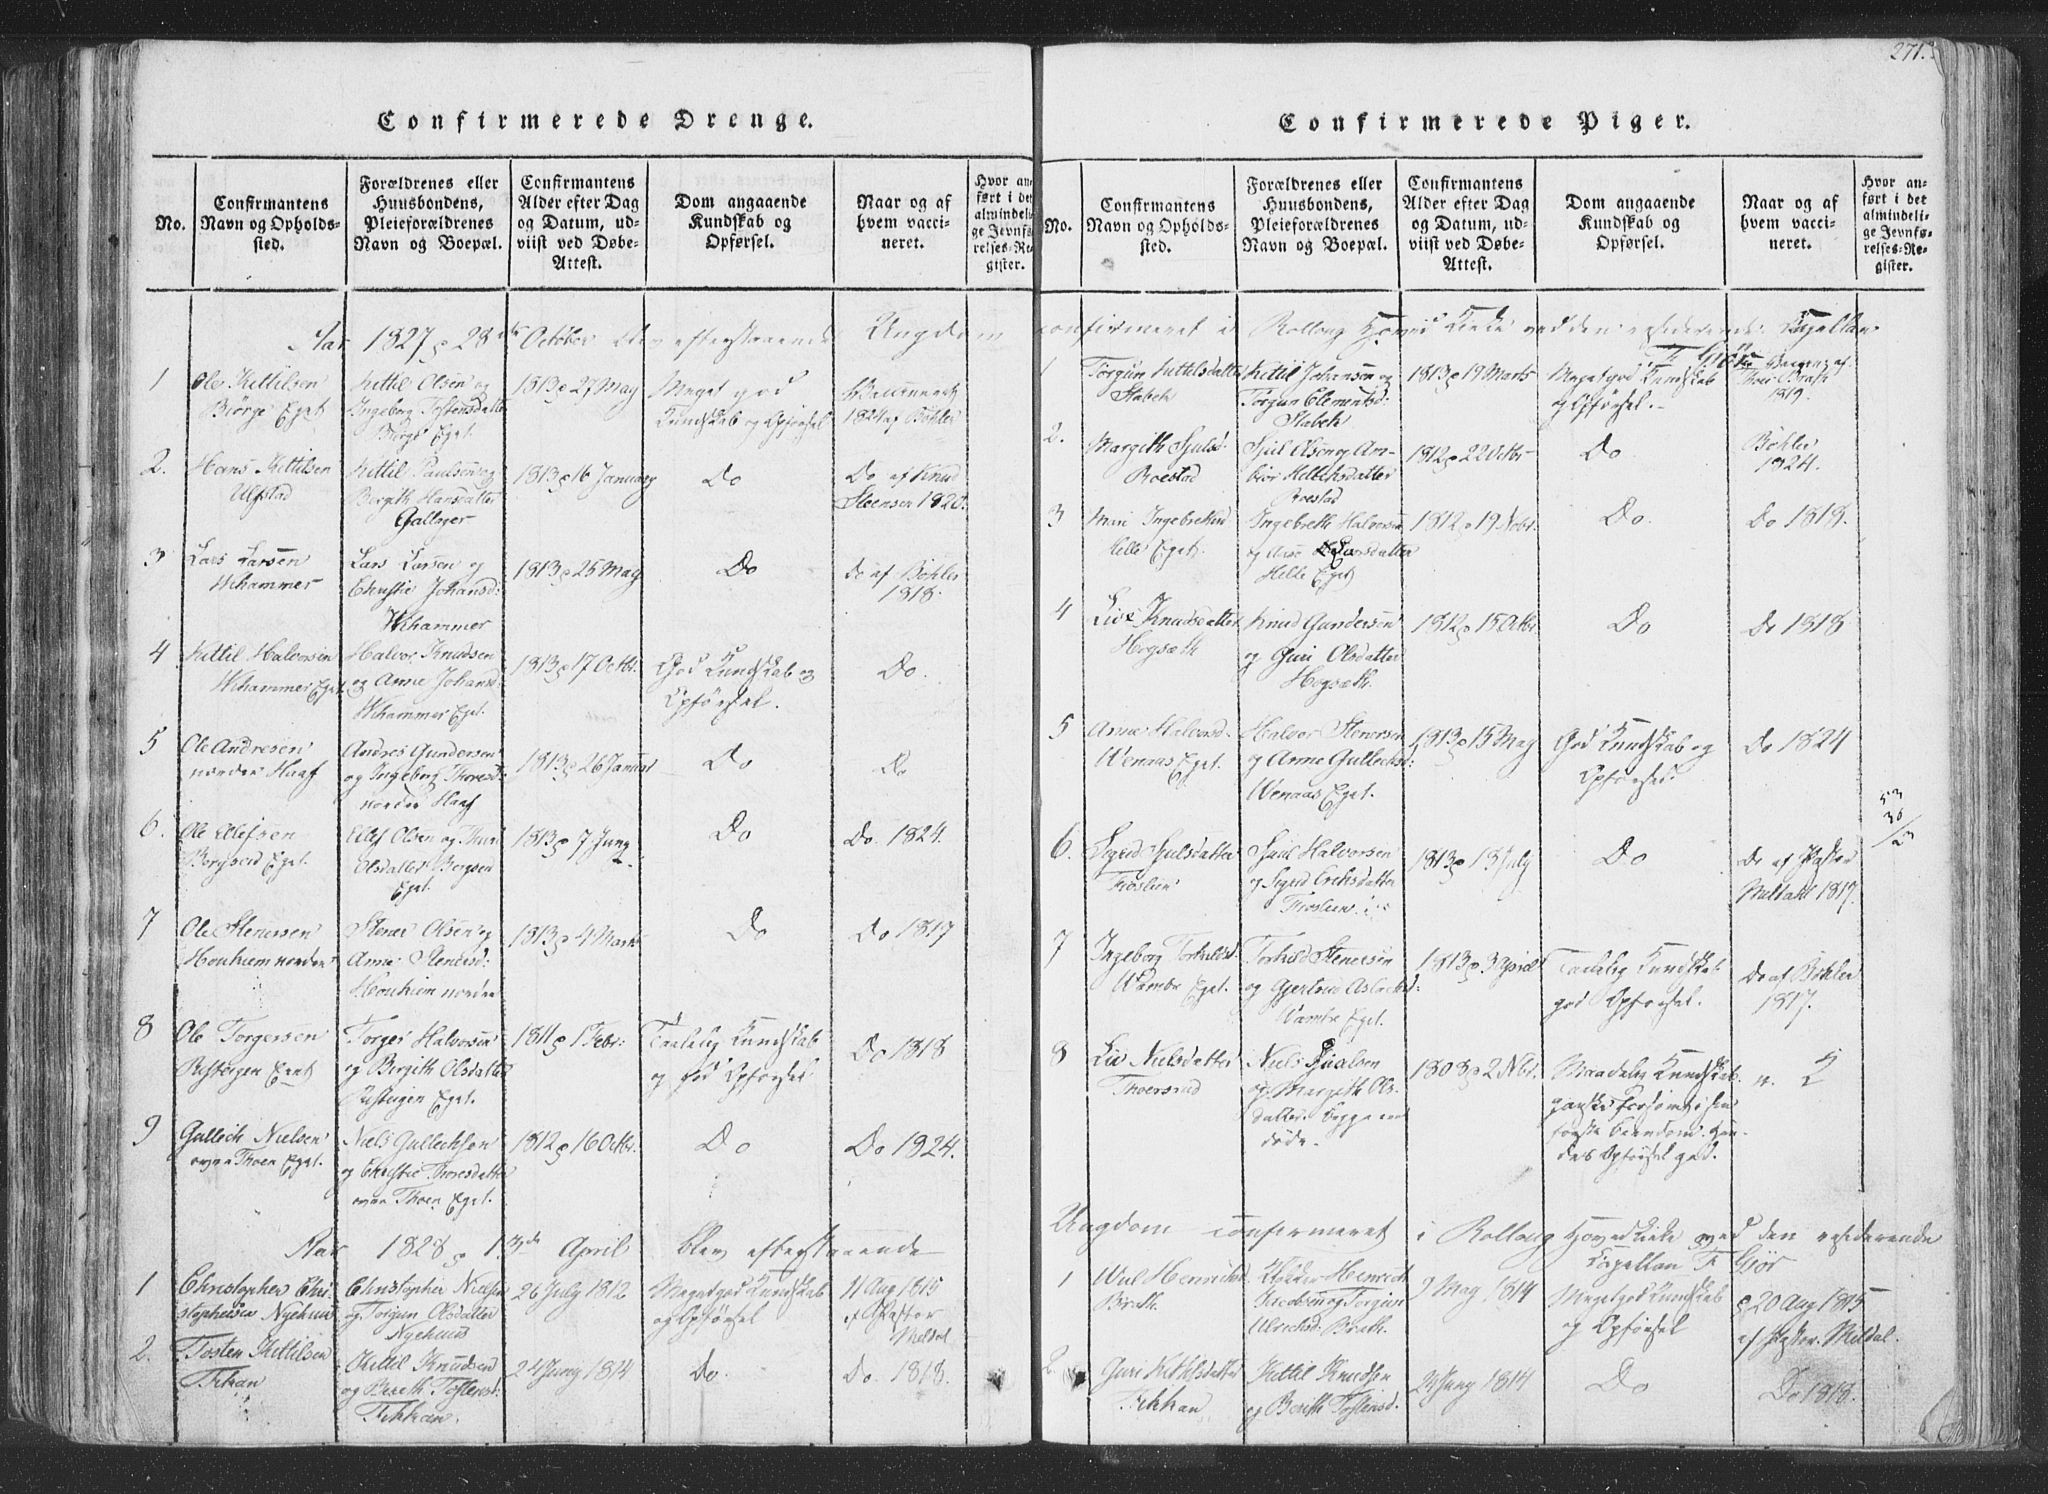 271.
Confirmerede Drenge.
No.
Confirmantens
Navn og Opholds-
sted.
Forældrenes eller
Huusbondens,
Pleieforældrenes
Navn og Boepæl.
Confirmantens
Alder efter Dag
og Datum, ud-
viist ved Døbe-
Attest.
Dom angaaende
Kundskab og
Opførsel.
Naar og af
hvem vacci-
neret.
Hvor an-
ført i det
almindeli-
ge Jevnfø-
relses-Re-
gister.
Aar 1827 28de October blev efterstaaende Ungdom
1
Ole Kittilsen
Biørge Eget
Kittil Olsen og
Ingeborg Tostensdatter
Eget
1813 27 May
Meget god
Kundskab og Opførsel
Vaccineret
1824 af Bøhler
2.
Hans Kittilsen
Ulfstad
Kittil Paulsen og
Birgith Hansdatter
Gallager
1813 16 January
Do
Do af Knud
Steensen 1820.
3
Lars Larsen
Wihammer
Lars Larsen og
Christie Johansd:
Wihammer
1813 25 May
Do
Do af Bøhler
1818.
4
Kittil Halvorsen
Wihammer Eget
Halvor Knudsen
og Anne Johansd:
Wihammer Eget.
1813 17 Octbr.
God Kundskab og
Opførsel.
Do.
5
Ole Andresen
nordre Haaf
Andres Gundersen
og Ingeborg Thoresd:
nordre Haaf
1813 26 Januar
Do
Do
6.
Ole Ellefsen
Eget.
Ellef Olsen og
Olsdatter
Eget.
1813 7 Juny
Do
Do. 1824.
7
Ole Stenersen
nordre
Stener Olsen og
Anne Stenersd:
nordre
1813 4 Marts
Do
Do 1817
8
Ole Torgersen
Rusteigen Eget
Torger Halvorsen
og Birgith Olsdatter
Rusteigen Eget.
1811 1 Febr:
Taalelig Kundskab
og god Opførsel
Do 1818
9
Gullech Nielsen
Thoen Eget.
Niels Gullechsen
og Christie Thoresdatter
Thoen Eget.
1812 16 Octbr.
Do
Do 1824.
Aar 1828 13de April blev efterstaaende
1
Christopher Chri-
stophersen Nyehuus
Christopher Nielsen
og Torgun Olsdatter
Nyehuus
26 July 1812
Meget god Kundskab
og Opførsel
11 Aug 1815
af Pastor
Meldal
2.
Tosten Kittilsen
Kittil Knudsen
og Berith Tostensd:
24 Juny 1814
Do.
Do. 1818.
Confirmerede Piger.
No.
Confirmantens
Navn og Opholds-
sted.
Forældrenes eller
Huusbondens,
Pleieforældrenes
Navn og Boepæl.
Confirmantens
Alder efter Dag
og Datum, ud-
viist ved Døbe-
Attest.
Dom angaaende
Kundskab og
Opførsel.
Naar og af
hvem vacci-
neret.
Hvor an-
ført i det
almindeli-
ge Jevnfø-
relses-Re-
gister.
confirmeret i Rolloug Hoved Kirke ved den residerende Capellan
F Giør
1
Torgun Kittilsdatter
Stabek
Kittil Johansen og
Torgun Clemetsd:
Stabek
1813 19 Marts
Meget god Kundskab
og Opførsel.
1819.
2.
Margith
Roestad
Olsen og Am-
bior
Roestad
1812 22 Octbr
Do
Bøhler
1824.
3
Mari Ingebrethsd
Helle Eget.
Ingebreth Halvorsen
og
Helle Eget
1812 19 Nobr.
Do.
Do 1818.
4
Live Knudsdatter
Hogsæth
Knud Gundersen
og Guri Olsdatter
Hogsæth.
1812 15 Octbr
Do
Do 1818
5
Anne Halvorsd:
Wenaas Eget.
Halvor Stenersen
og Anne Gullechsd:
Wenaas Eget.
1813 15 May
God Kundskab og
Opførsel.
Do 1824
6.
Sigrid
Halvorsen
og Sigrid Erichsdatter
1813 13 July
Do
Do af Pastor
Meldahl 1817.
53
36
/23
7
Ingeborg Torkildsd.
Wambe Eget.
Torkild Stenersen
og Gjertrue Aslachsd:
Wambe Eget.
1813 3 April
Taalelig Kundskab
god Opførsel.
Do af Bøhler
1817.
8
Liv Nielsdatter
Thoersrud
Niels
og Margith Ols-
datter. Begge ere
døde.
1808 2 Nbr.
Maadelig Kundskab.
ganske forsømt i sin
første Barndom. Hen-
des Opførsel god.
Ungdom confirmeret i Rolloug Hoved Kirke ved den residerende
Capellan F Giør
1
Henrichsd
Bræth.
Henrich
Jacobsen og Torgun
Ulrichsd: Bræth.
9 May 1814
Meget god Kundskab
og Opførsel
20 Aug 1815
af Pastor Meldal.
2.
Guri Kittilsdatter
Kittil Knudsen
og Berith Tostensd.
24 Juny 1814
Do
Do 1818.